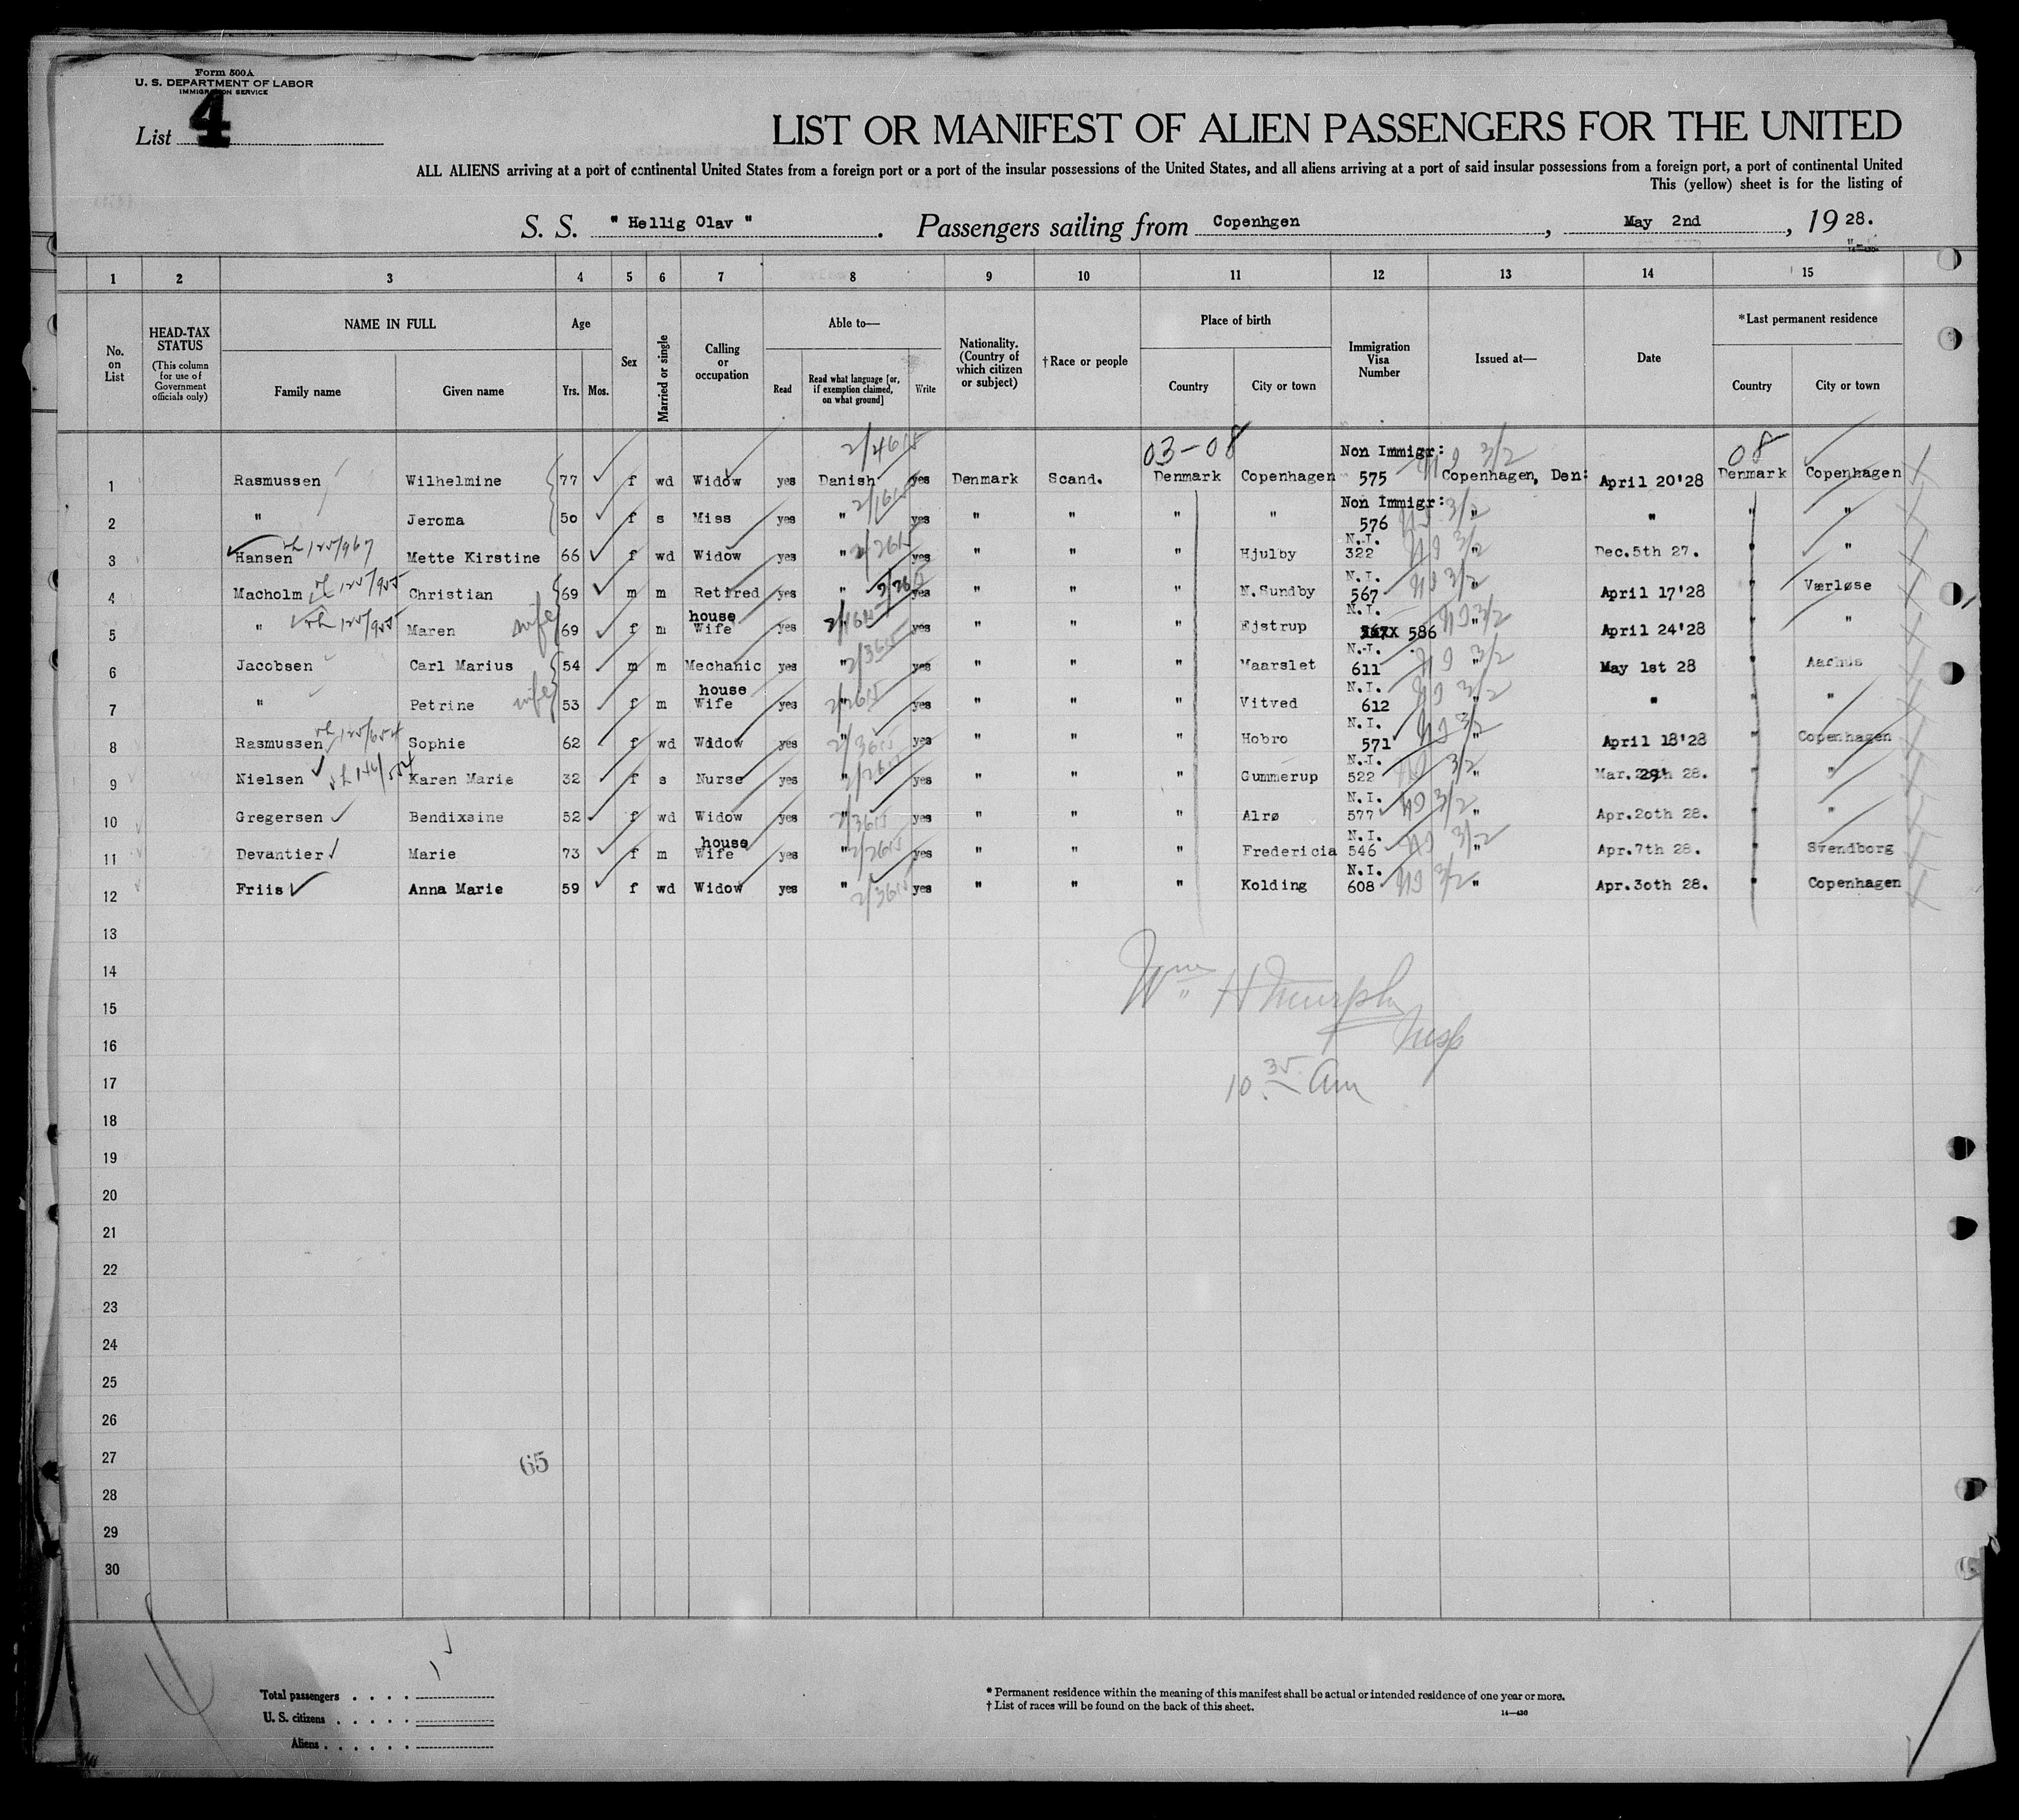 Form 500A
U. S. DEPARTMENT OF LABOR
IMMIGRATION SERVICE
List 4
LIST OR MANIFEST OF ALIEN PASSENGERS FOR THE UNITED
ALL ALIENS arriving at a port of continental United States from a foreign port or a port of the insular possessions of the United States, and all aliens arriving at a port of said insular possessions from a foreign port, a port of continental United
This (yellow) sheet is for the listing of
S. S. " Hellig Olav " . Passengers sailing from Copenhgen , May 2nd , 19 28.
1 2 3 4 5 6 7 8 9 10 11 12 13 14 15
No. on List
HEAD-TAX STATUS (This column for use of Government officials only)
NAME IN FULL
Family name Given name
Age
Yrs. Mos.
Sex
Married or single
Calling or occupation
Able to—
Read
Read what language [or, if exemption claimed, on what ground]
Write
Nationality. (Country of which citizen or subject)
†Race or people
Place of birth
Country City or town
Immigration Visa Number
Issued at—
Date
*Last permanent residence
Country City or town
03-08 Non Immigr: 3/2 08
1 Rasmussen Wilhelmine 77 f wd Widow yes Danish yes Denmark Scand. Denmark Copenhagen 575 Copenhagen, Den: April 20'28 Denmark Copenhagen
Non Immigr:
2 " Jeroma 50 f s Miss yes " yes " " " " 576 3/2 " " " "
N.I.
3 Hansen Mette Kirstine 66 f wd Widow yes " yes " " " Hjulby 322 3/2 " Dec.5th 27. " "
N.I.
4 Macholm Christian 69 m m Retired yes " yes " " " N.Sundby 567 3/2 " April 17'28 " Værløse
house N.I.
5 " Maren wife 69 f m Wife yes " yes " " " Ejstrup 586 3/2 " April 24'28 " "
N.I.
6 Jacobsen Carl Marius 54 m m Mechanic yes " yes " " " Maarslet 611 3/2 " May 1st 28 " Aarhus
house N.I.
7 " Petrine wife 53 f m Wife yes " yes " " " Vitved 612 3/2 " " " "
N.I.
8 Rasmussen Sophie 62 f wd Widow yes " yes " " " Hobro 571 3/2 " April 18'28 " Copenhagen
N.I.
9 Nielsen Karen Marie 32 f s Nurse yes " yes " " " Gummerup 522 3/2 " Mar. 29th 28. " "
N.I.
10 Gregersen Bendixsine 52 f wd Widow yes " yes " " " Alrø 577 3/2 " Apr.20th 28. " "
house N.I.
11 Devantier Marie 73 f m Wife yes " yes " " " Fredericia 546 3/2 " Apr.7th 28. " Svendborg
N.I.
12 Friis Anna Marie 59 f wd Widow yes " yes " " " Kolding 608 3/2 " Apr.30th 28. " Copenhagen
13
14
Wm H Murphy
15
16
Insp
17
10 35 Am
18
19
20
21
22
23
24
25
26
27
65
28
29
30
Total passengers . . . .
U. S. citizens . . . . .
Aliens . . . . . .
* Permanent residence within the meaning of this manifest shall be actual or intended residence of one year or more.
† List of races will be found on the back of this sheet.
14—430